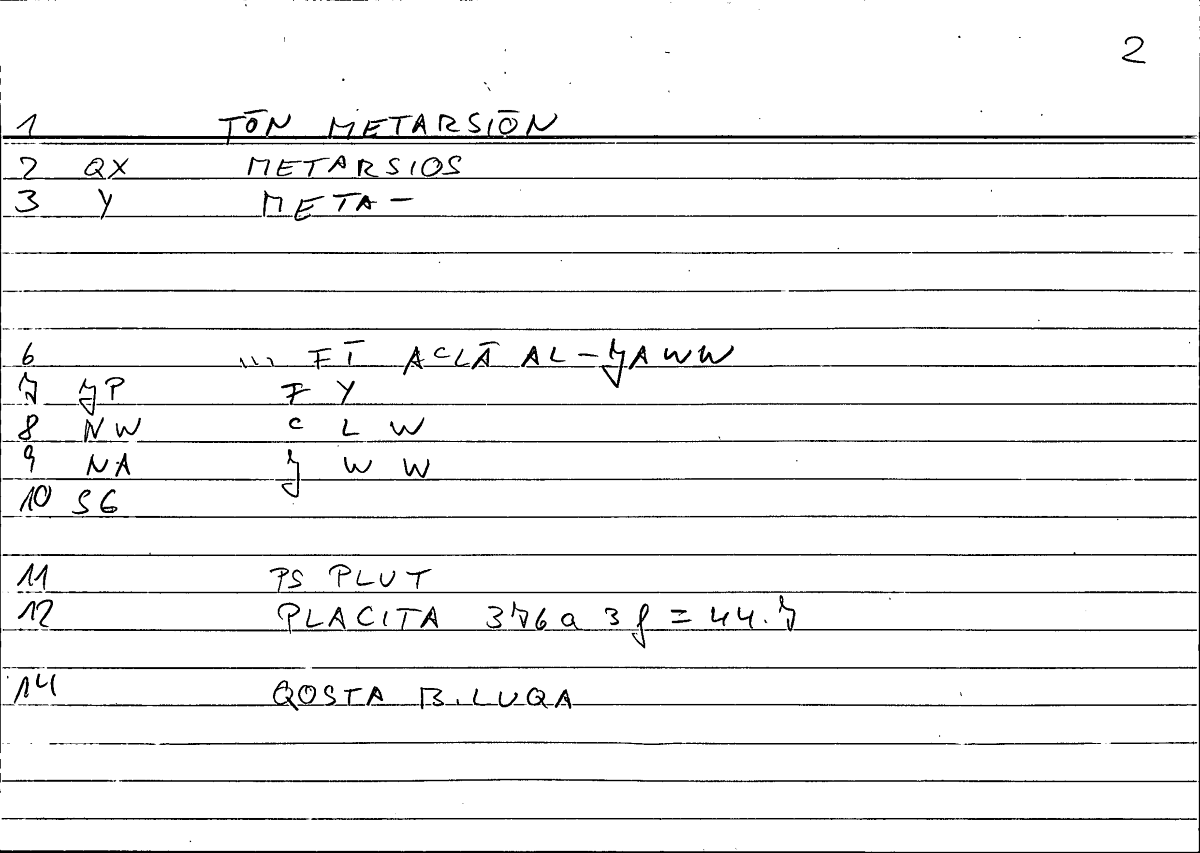 2
1 TŌN METARSIŌN
2 QX METARSIOS
3 Y META-
6 ... FĪ ACLĀ AL-JAWW
7 JP F Y
8 NW C L W
9 NA J W W
10 SG
11 PS PLUT
12 PLACITA 376a 3f = 44.7
14 QOSTA B.LUQA